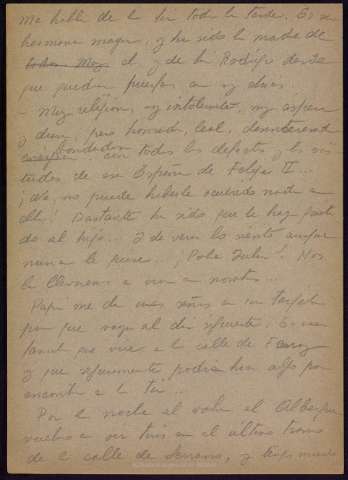 me habló de la tía toda la tarde. Es su
hermana mayor, y ha sido la madre de
él y de la Rodrigo desde
que quedaron puerfa
- Muy religiosa, muy intolerante, muy aspera
y dura, pero honrada, leal, desinteresada
bondadosa con todos los defectos y las vir
tudes de su España de Felipe II...
¡No, no puede haberle ocurrido nada a
ella! Bastante ha sido que le haya
do al hijo... Y de veras lo siento aunque
nunca le quise... ¡Pobre Julia! Nos
la llevaremos a vivir a nosotros...
Papá me da unas señas en un tarjeta
para que vaya al día siguiente. Es una
familia que vive en la calle de Ferraz
y que seguramente podrá hacer algo por
encontrar a la tía...
Por la noche al volver al Albergue
vuelvo a ver tres en el último tramo
de la calle de Serrano, y tengo miedo